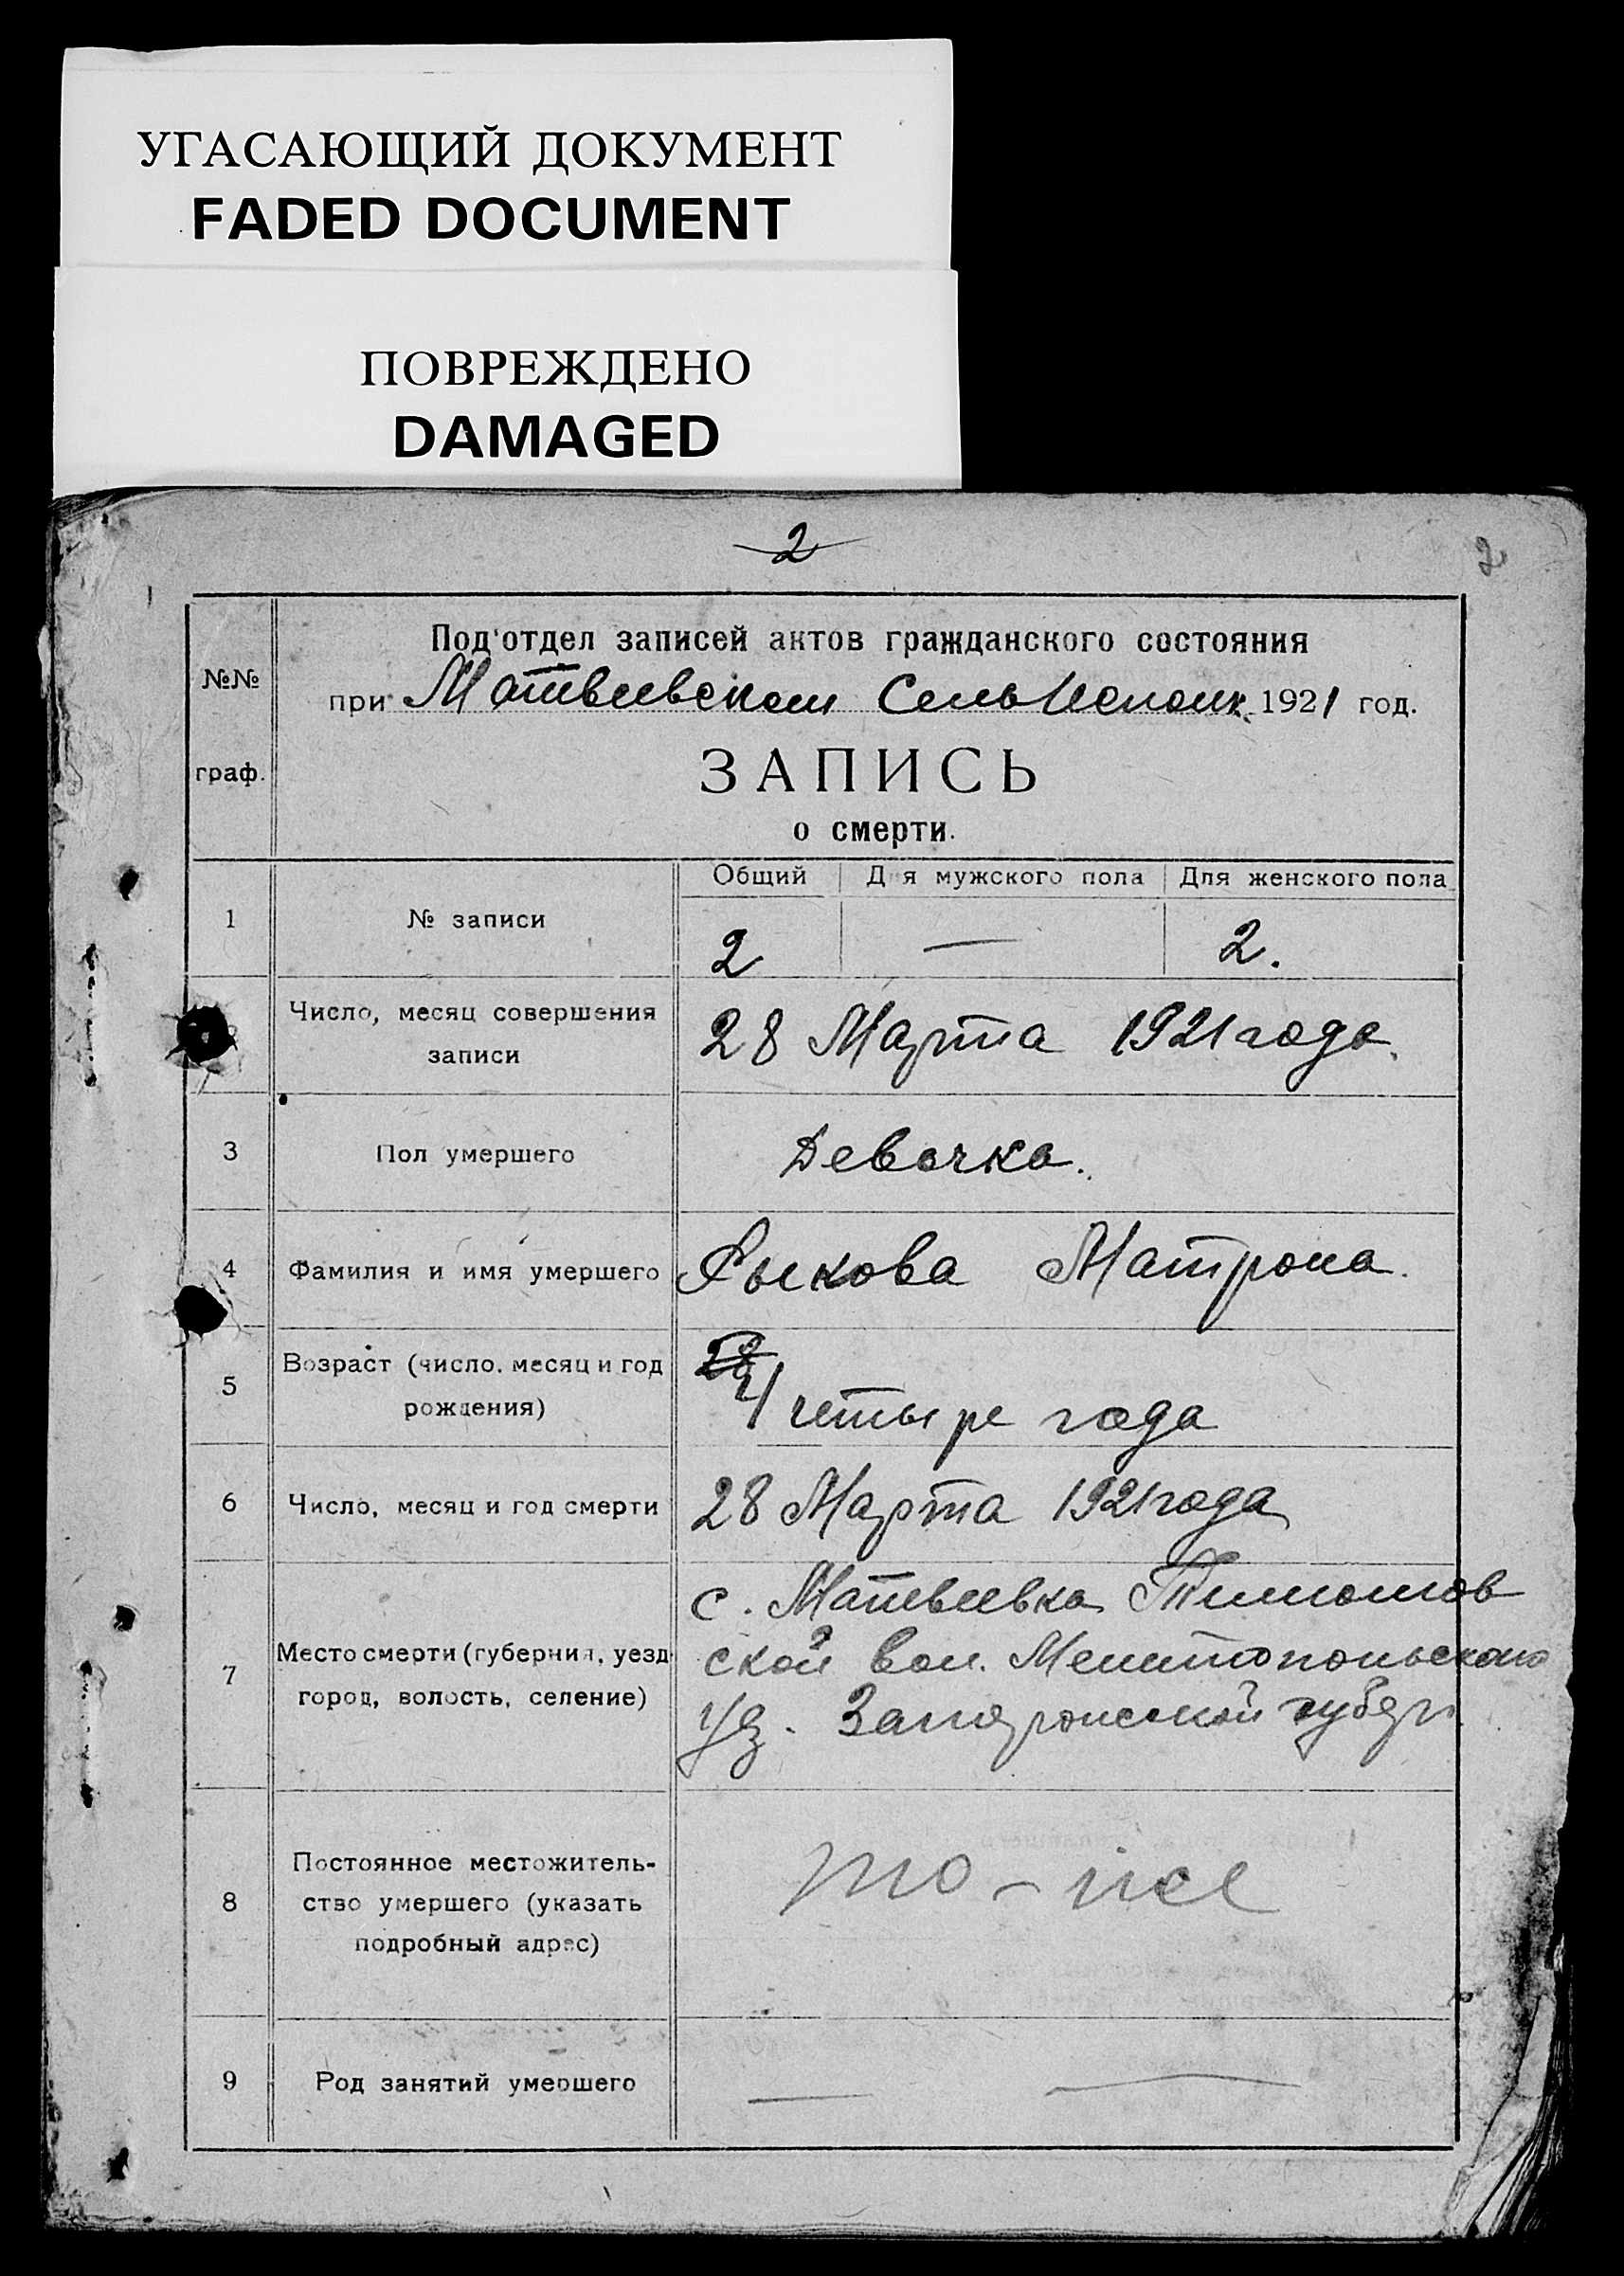 УГАСАЮЩИЙ ДОКУМЕНТ
FADED DOCUMENT
ПОВРЕЖДЕНО
DAMAGED
2
2
№№
граф.
Под'отдел записей актов гражданского состояния
при Матвеевском СельИсполк. 1921 год.
ЗАПИСЬ
о смерти.
Общий Для мужского пола Для женского пола
1 № записи 2 — 2.
Число, месяц совершения
записи
28 Марта 1921 года.
3 Пол умершего Девочка.
4 Фамилия и имя умершего Рыкова Матрона.
5 Возраст (число, месяц и год
рождения)
4 четыре года
6 Число, месяц и год смерти 28 Марта 1921 года
7 Место смерти (губерния, уезд
город, волость, селение)
с. Матвеевка Тимошов
ской вол. Мелитопольского
уз. Запорожской губерн
8 Постоянное местожитель-
ство умершего (указать
подробный адрес)
то-же
9 Род занятий умершего — —